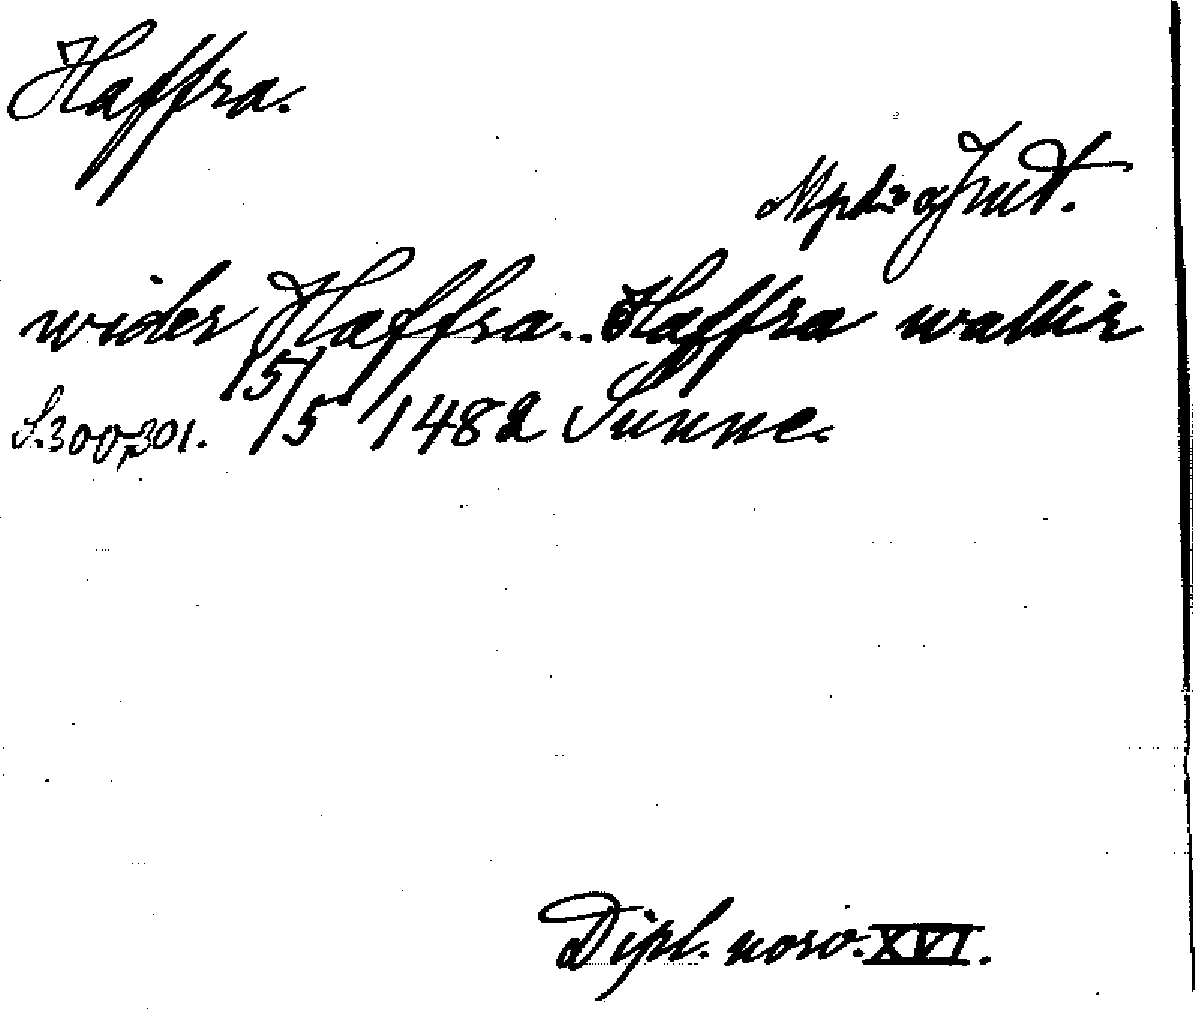 Haffra.
Mpd = Jmt.
wider Haffra.. Haffra wallir
S. 300, 301. 15/5 1482 Sunne.
Dipl. norv. XVI.